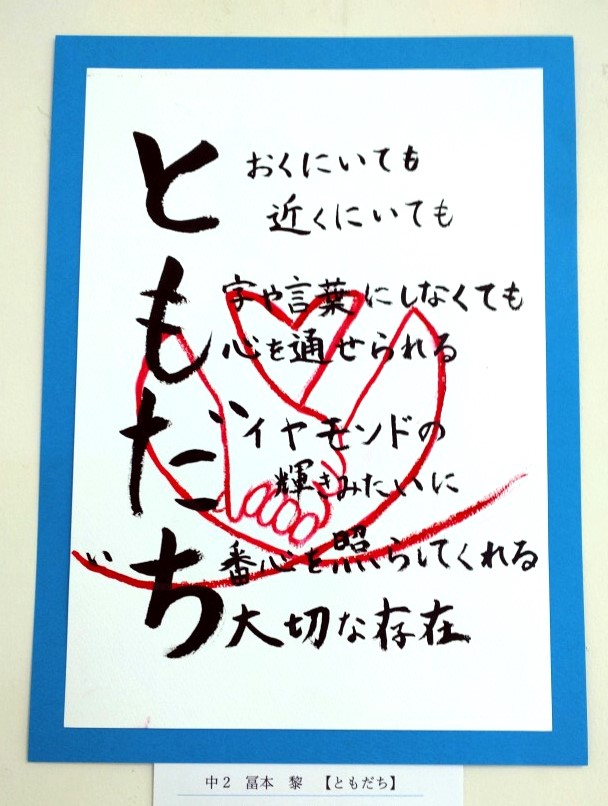 とおくにいても
近くにいても
も字や言葉にしなくても
心を通せられる
だイヤモンドの
輝きみたいに
いち番心を照らしてくれる
大切な存在
中2 冨本 黎 【ともだち】